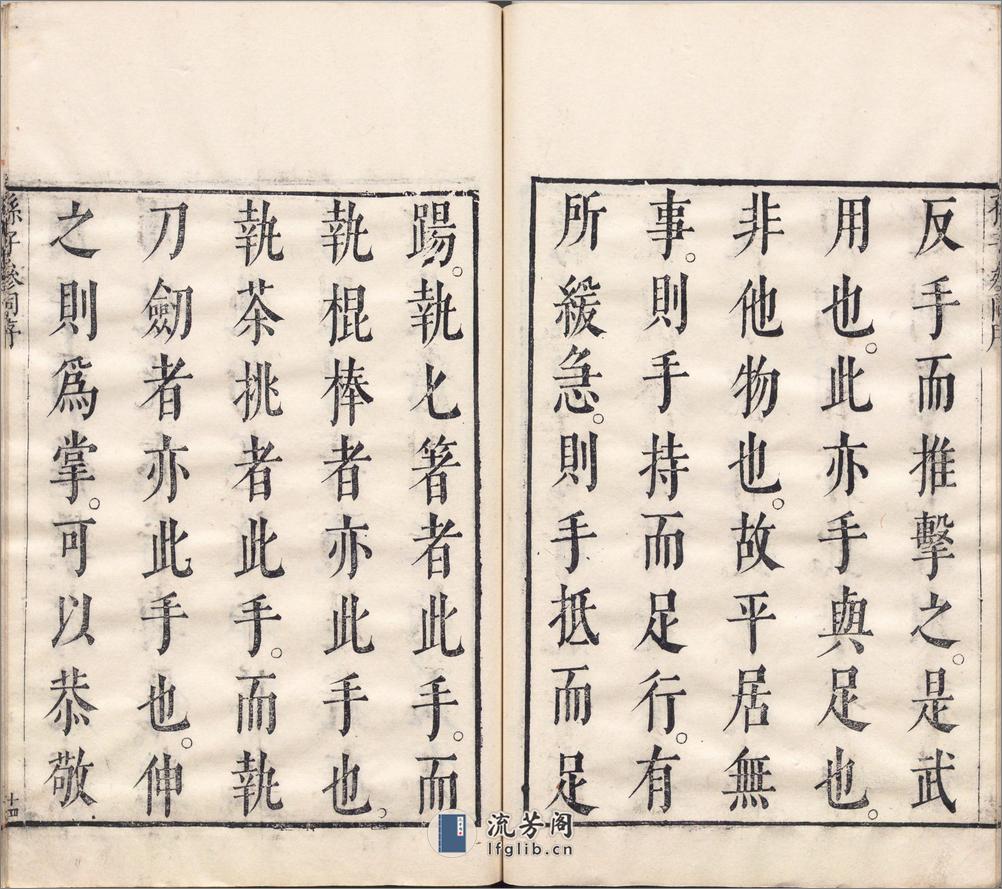 反手而推擊之。是武
用也。此亦手與足也。
非他物也。故平居無
事。則手持而足行。有
所緩急。則手抵而足
踢。執匕箸者此手。而
執棍棒者亦此手也。
執茶挑者此手。而執
刀劒者亦此手也。伸
之則爲掌。可以恭敬
孫子參同序
十四
流芳阁
lfglib.cn